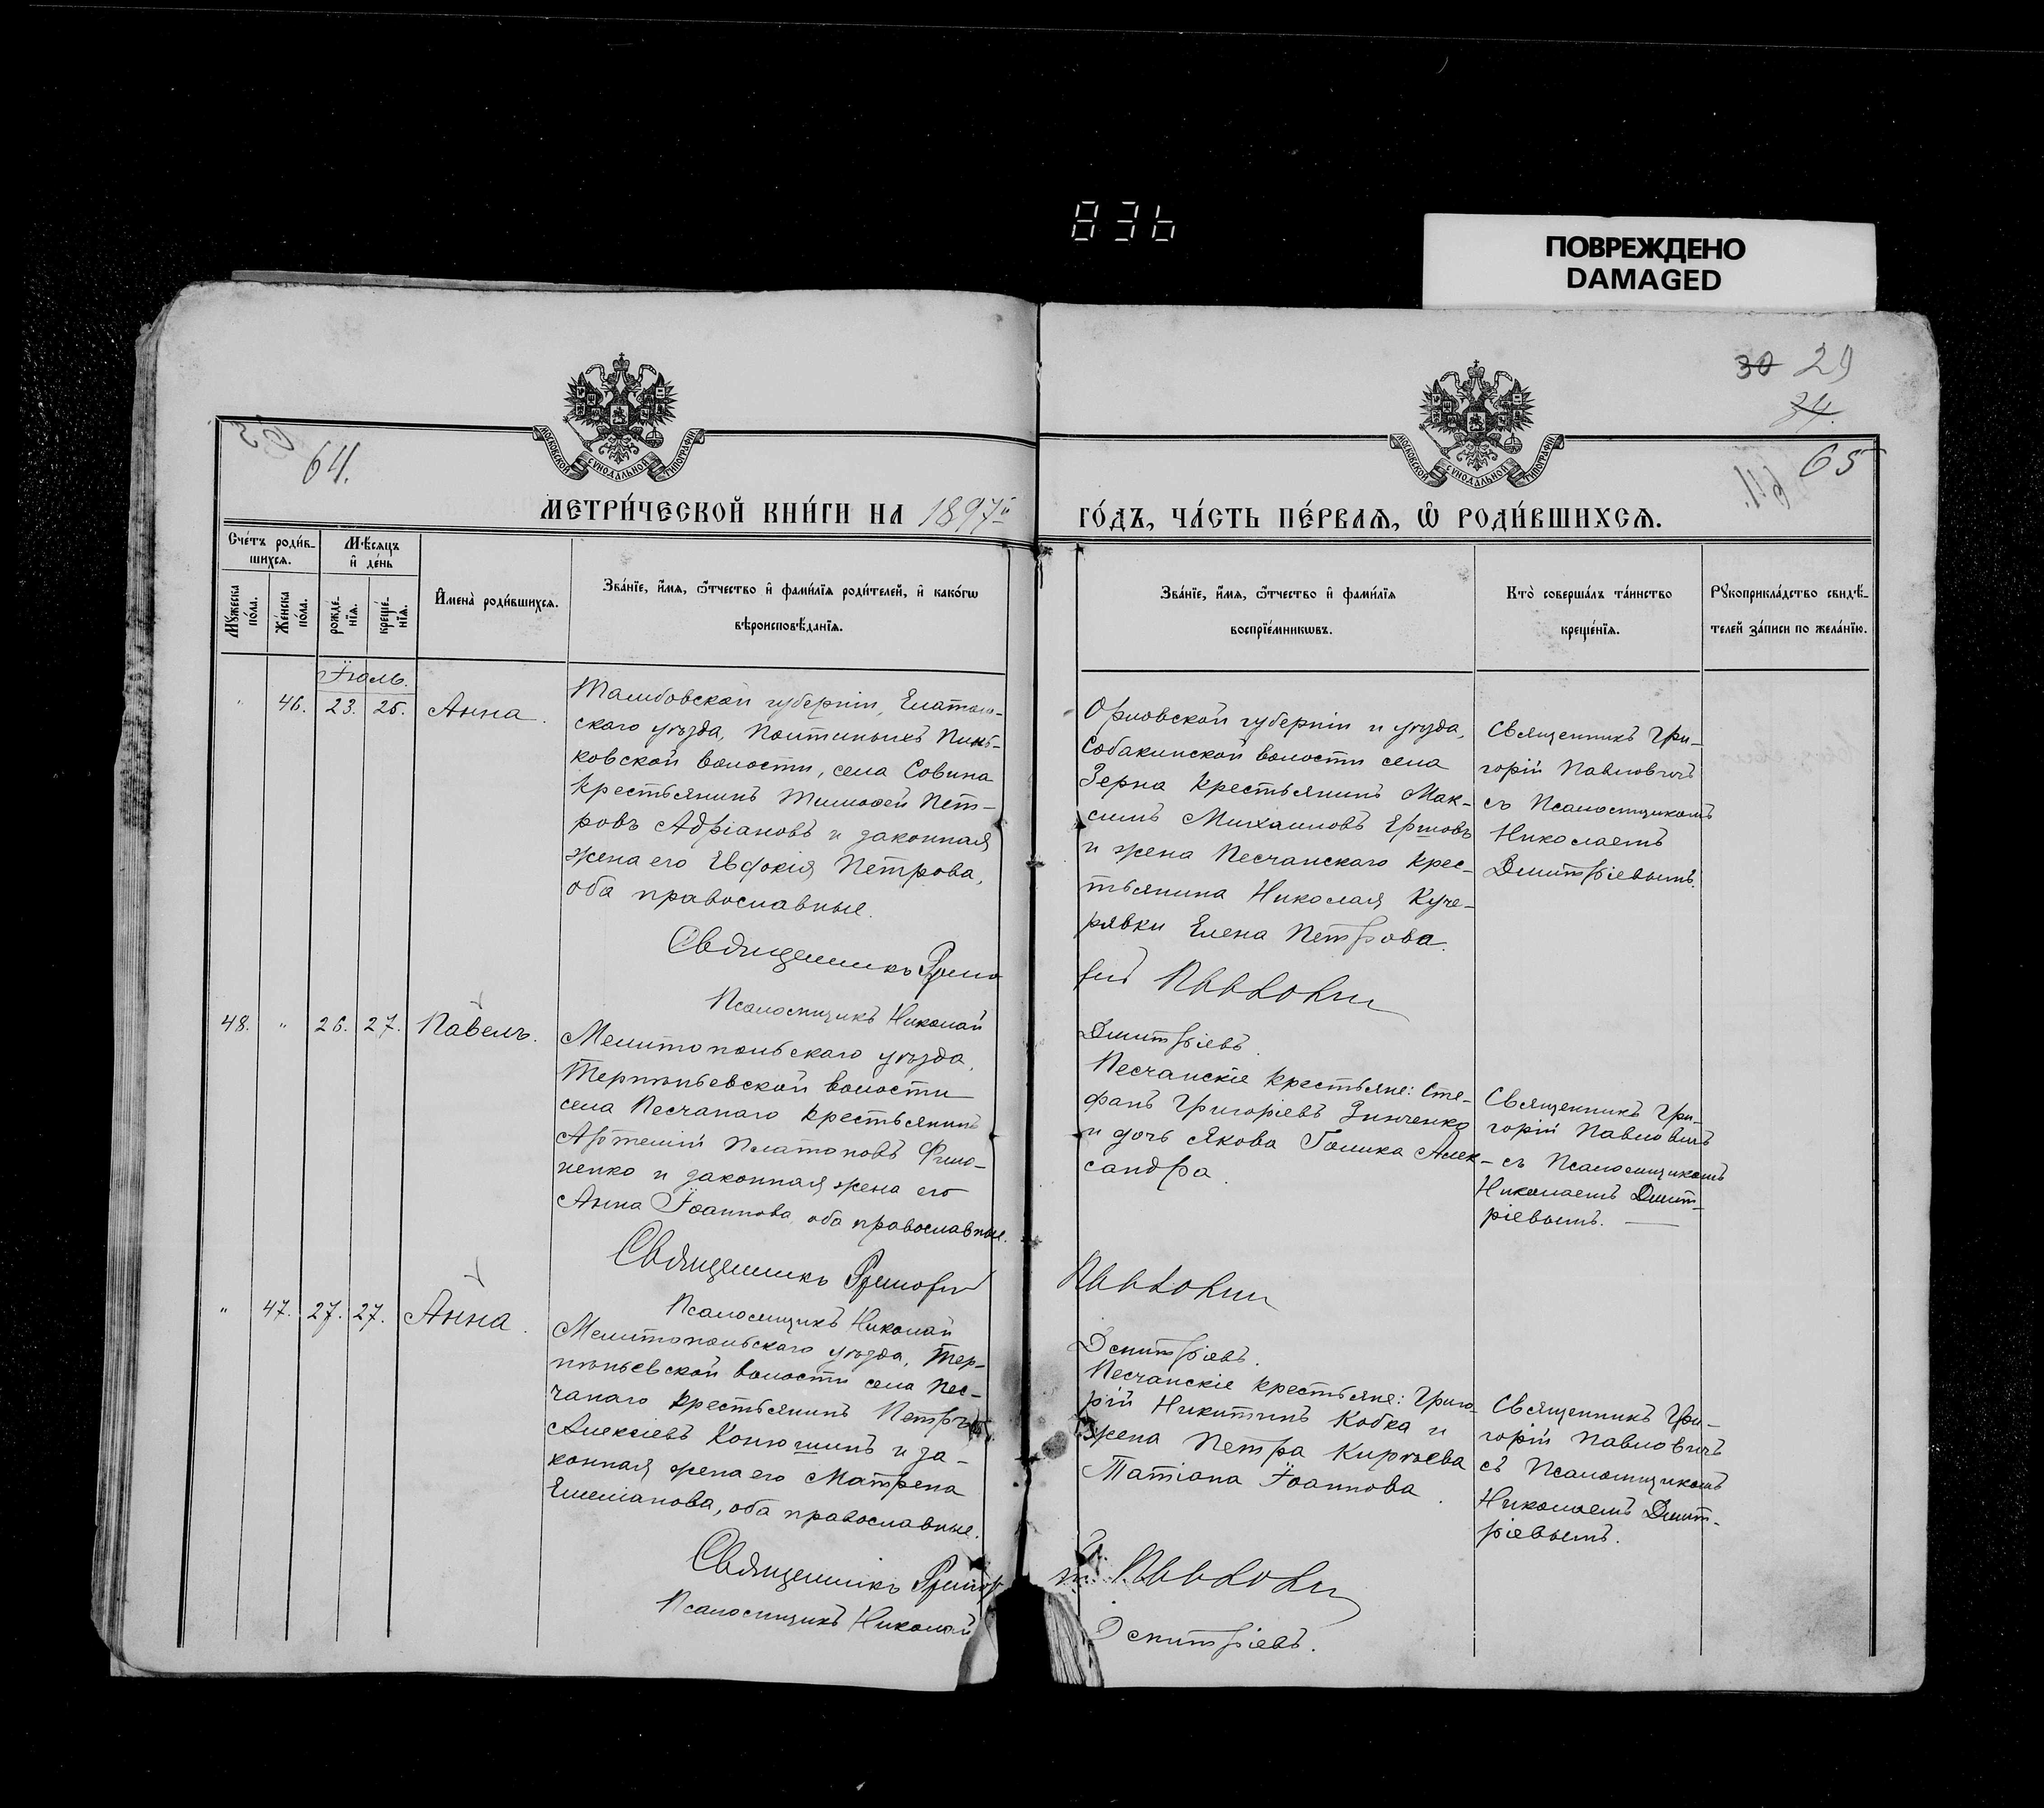 836
ПОВРЕЖДЕНО
DAMAGED
30 29
34.
64.
65
МОСКОВСКОЙ СУНОДАЛЬНОЙ ТИПОГРАФІИ
МОСКОВСКОЙ СУНОДАЛЬНОЙ ТИПОГРАФІИ
МЕТРИ́ЧЕСКОЙ КНИ́ГИ НА 1897й
ГО́ДЪ, ЧА́СТЬ ПЕ́РВАѦ, Ѡ҆ РОДИ́ВШИХСѦ.
Сче́тъ роди́в-
шихсѧ.
Мѣ́сѧцъ
и҆ де́нь
Мꙋ́жеска
по́ла.
Же́нска
по́ла.
рожде-
нїѧ.
креще́-
нїѧ.
И҆мена̀ роди́вшихсѧ.
Зва́нїе, и҆́мѧ, ѻ҆́тчество и҆ фами́лїѧ роди́телей, и҆ како́гѡ
вѣроисповѣ́данїѧ.
Зва́нїе, и҆́мѧ, ѻ҆́тчество и҆ фами́лїѧ
воспрїе́мникѡвъ.
Кто̀ соверша́лъ та́инство
креще́нїѧ.
Рꙋкоприкла́дство свидѣ́-
телей за́писи по жела́нїю.
Іюль.
" 46. 23. 25. Анна.
Тамбовской губерніи, Елатом-
скаго уѣзда,
ковской волости, села Совина
крестьянинъ Тимофей Пет-
ровъ Адріановъ и законная
жена его Евдокія Петрова,
оба православные.
Священникъ Григо
Псаломщикъ Николай
Орловской губерніи и уѣзда,
Собакинской волости села
Зерна крестьянинъ Мак-
симъ Михаиловъ Ершовъ
и жена Песчанскаго крес-
тьянина Николая Куче-
рявки Елена Петрова.
рій Павловичъ
Дмитріевъ.
Священникъ Гри-
горій Павловичъ
съ Псаломщикомъ
Николаемъ
Дмитріевымъ.
48. " 26. 27. Павелъ.
Мелитопольскаго уѣзда,
Терпѣньевской волости
села Песчанаго крестьянинъ
Артемій Платоновъ Фило-
ненко и законная жена его
Анна Іоаннова, оба православные.
Священникъ Григорій
Псаломщикъ Николай
Песчанскіе крестьяне: Сте-
фанъ Григоріевъ Зинченко
и дочь Якова Голика Алек-
сандра.
Павловичъ
Дмитріевъ.
Священникъ Гри-
горій Павловичъ
съ Псаломщикомъ
Николаемъ Дмит-
ріевымъ.
" 47. 27. 27. Анна.
Мелитопольскаго уѣзда, Тер-
пѣньевской волости села Пес-
чанаго крестьянинъ Петръ
Алексіевъ Конюшинъ и за-
конная жена его Матрена
Емеліанова, оба православные.
Священникъ Григор
Псаломщикъ Николай
Песчанскіе крестьяне: Григо-
рій Никитинъ Кобка и
жена Петра Киріева
Татіана Іоаннова.
Павловичъ
Дмитріевъ.
Священникъ Гри-
горій Павловичъ
съ Псаломщикомъ
Николаемъ Дмит-
ріевымъ.